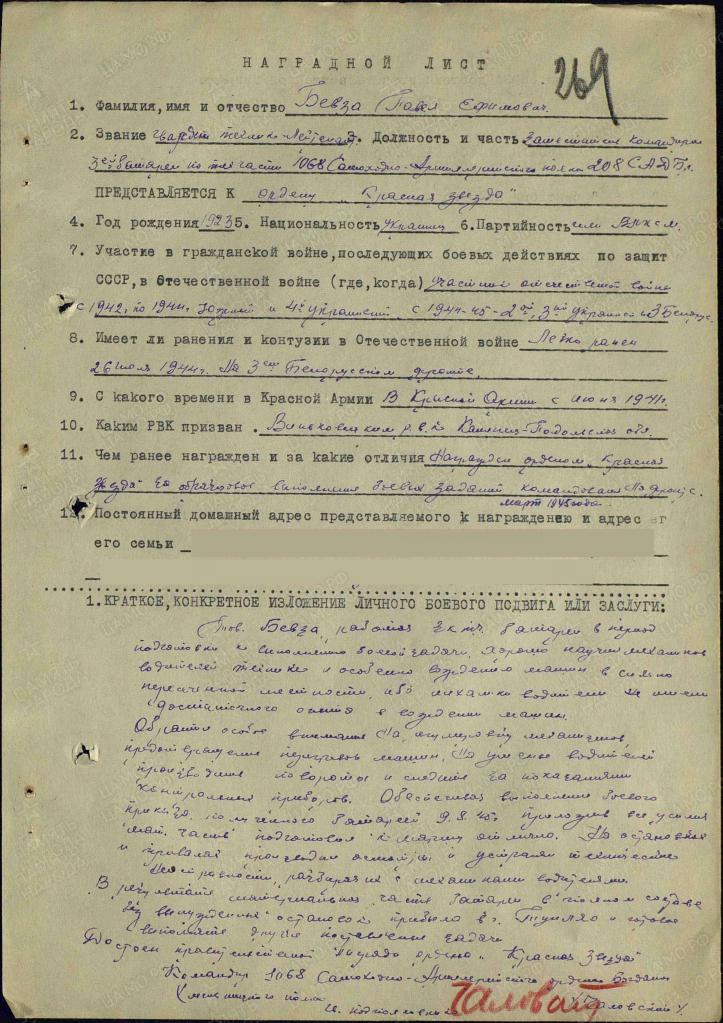 НАГРАДНОЙ ЛИСТ
269
1. Фамилия,имя и отчество Бевза Павел Ефимович.
2. Звание гвардии техник-лейтенант 3. Должность и часть Заместитель командира
3ей батареи по тех части 1068 Самоходно-Артиллерийского полка 208 САБр.
ПРЕДСТАВЛЯЕТСЯ К ордену "Красная звезда"
4. Год рождения 1923 5. Национальность украинец 6.Партийность член ВЛКСМ.
7. Участие в гражданской войне,последующих боевых действиях по защит
СССР,в Отечественной войне (где,когда) участник отечественной войны
с 1942 по 1944г. Южный и 4й украинский с 1944-45-2ой, 3ий украинский 3 Белорус.
8. Имеет ли ранения и контузии в Отечественной войне Легко ранен
26 июля 1944г. На 3ем Белорусском фронте.
9. С какого времени в Красной Армии В Красной Армии с июня 1941г.
10. Каким РВК призван . Виньковецким р.в.к Каменец-Подольская обл.
11. Чем ранее награжден и за какие отличия Награжден орденом "Красная
звезда" за образцовое выполнение боевых заданий командования На фронте.
март 1945 года
12. Постоянный домашный адрес представляемого к награждению и адрес ег
его семьи
1.КРАТКОЕ,КОНКРЕТНОЕ ИЗЛОЖЕНИЕ ЛИЧНОГО БОЕВОГО ПОДВИГА ИЛИ ЗАСЛУГИ:
Тов. Бевза, работая з.к.т.ч. батареи в период
подготовки к выполнению боевой задачи, хорошо научил механиков
водителей технике и особенно вождению машин в сильно
пересеченной местности, ибо механики водители не имели
достаточного опыта в вождении машин.
Обратил особое внимание на
предотвращение перегревов машин, На умение водителей
производить повороты и следить за показаниями
контрольных приборов. Обеспечивая выполнение боевого
приказа, полученного батареей 9.8.45г, приложив все усилия
мат. часть подготовил к маршу отлично. На остановках
и привалах производил осмотры и устранял технические
неисправности, разбирая их с механиками водителями.
В результате материальная часть батареи в полном составе
без вынужденных остановок прибыла в г. Туцюань и готова
выполнять другие поставленные задачи.
Достоин правительственной награды ордена "Красная Звезда"
Командир 1068 Самоходно-Артиллерийского ордена Богдана
Хмельницкого полка
гв. подполковник